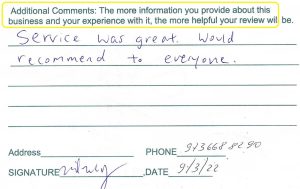 Additional Comments: The more information you provide about this
business and your experience with it, the more helpful your review will be.
Service was great. Would
recommend to everyone.
Address PHONE 913 668 8290
SIGNATURE DATE 9/3/22